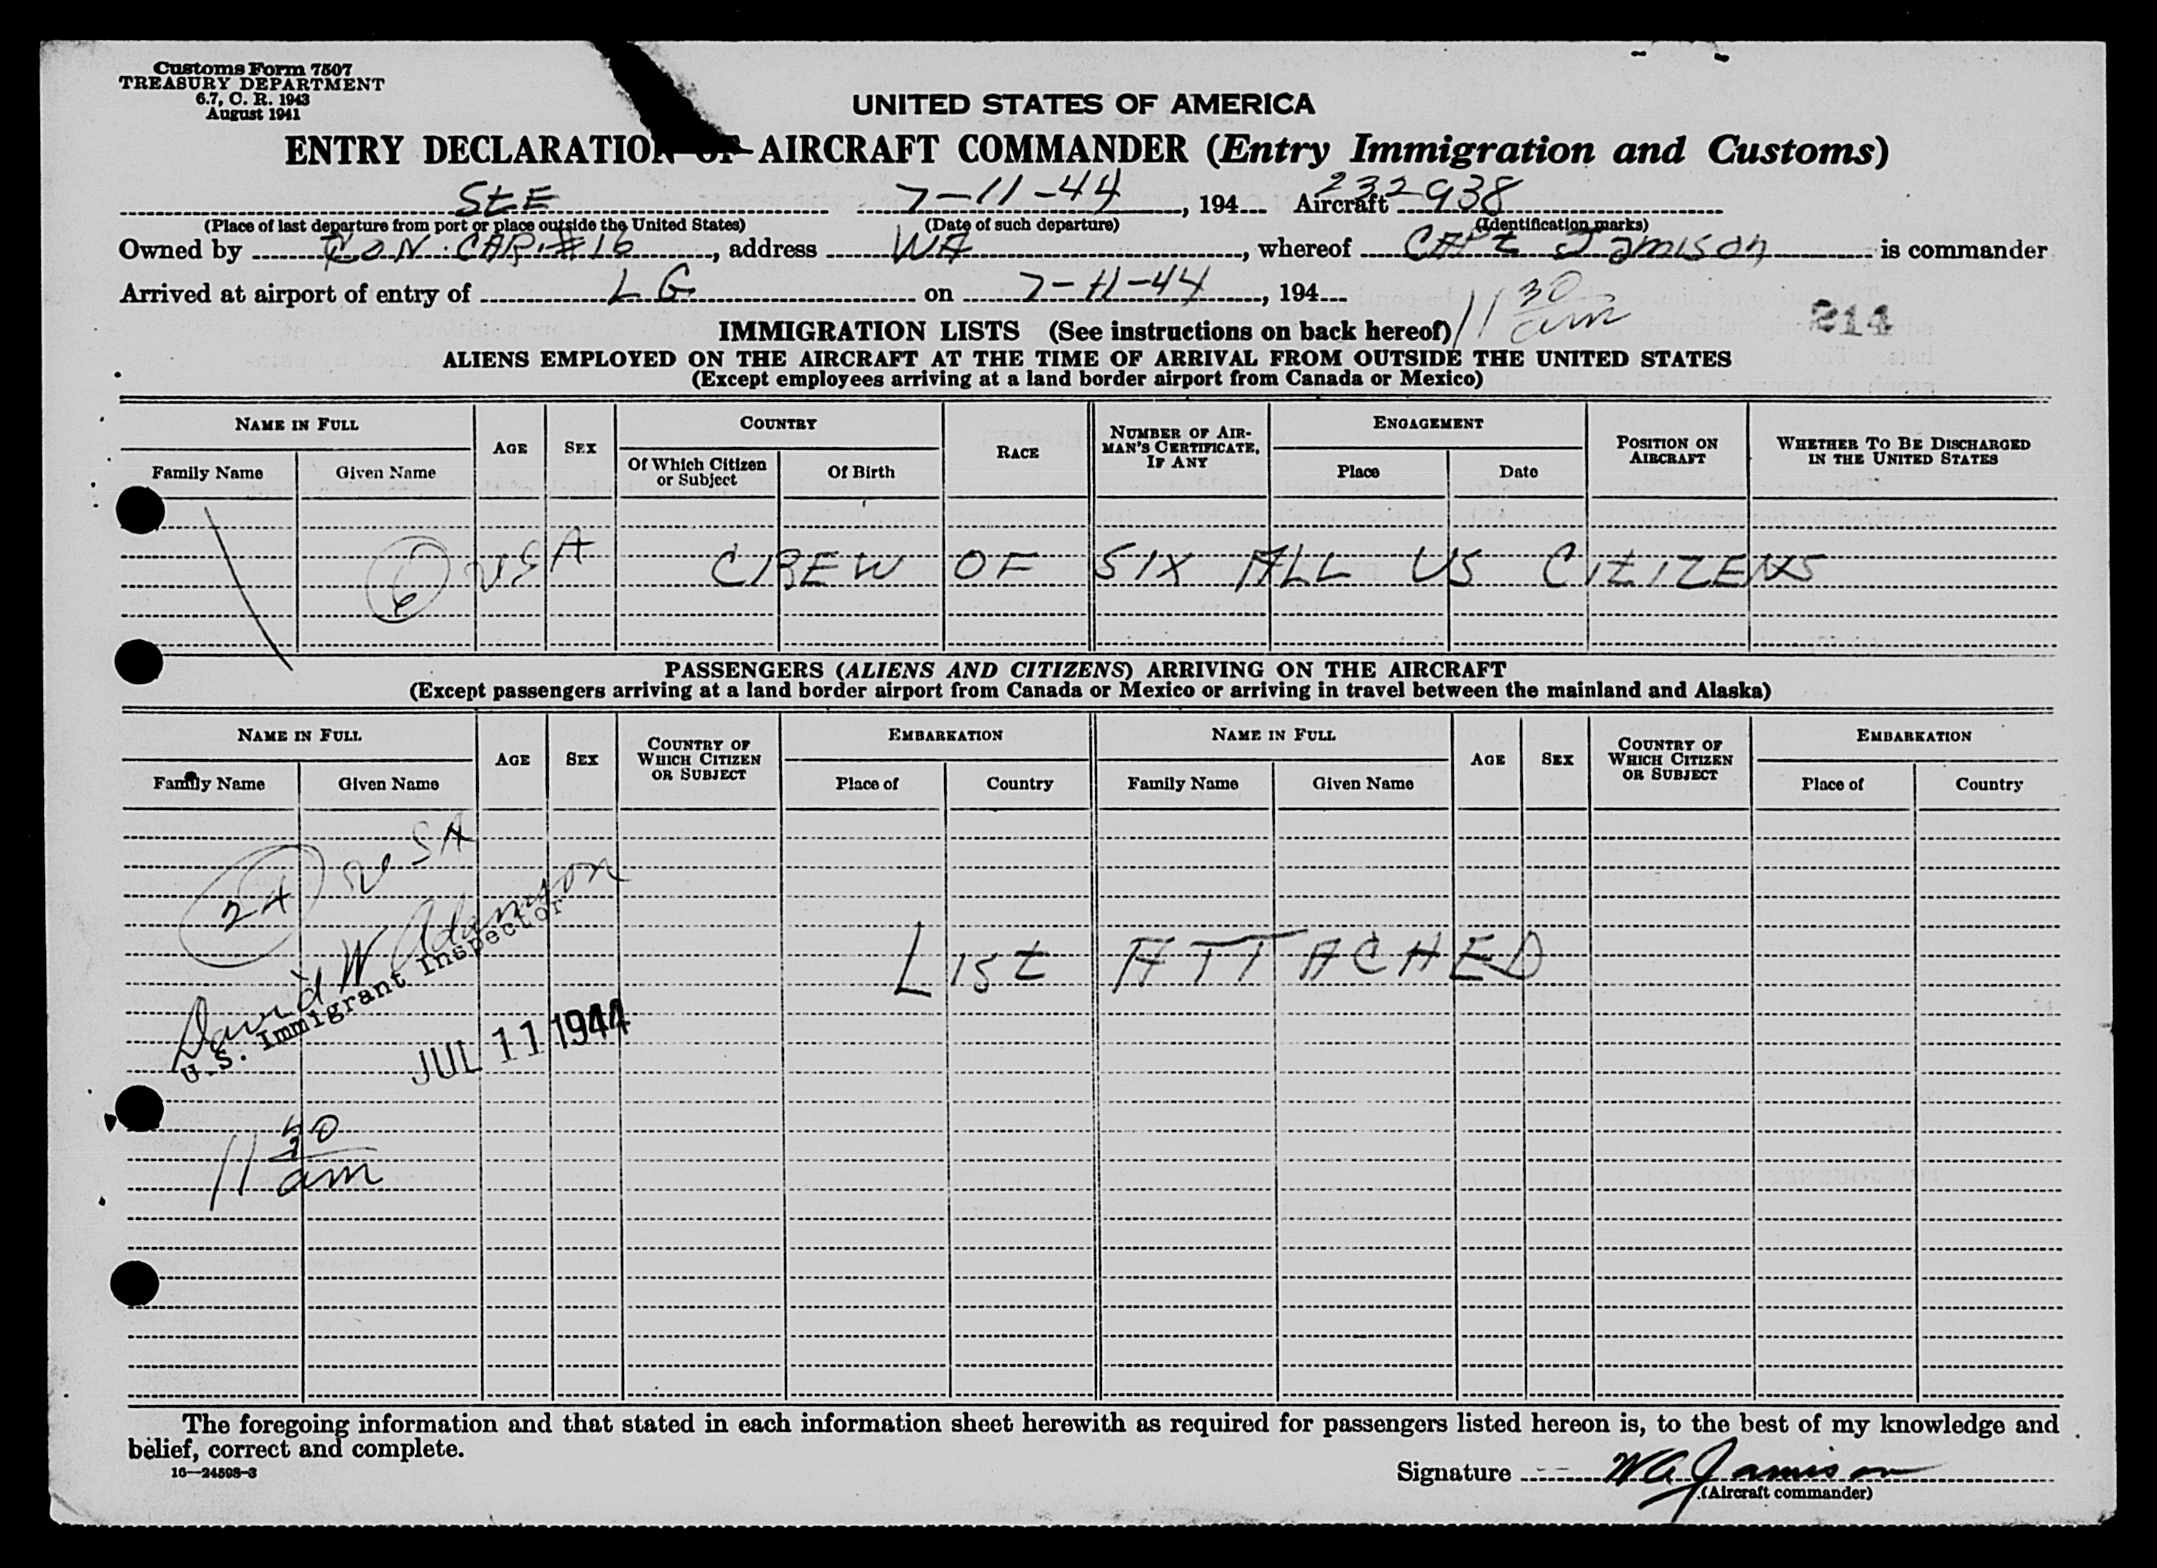 Customs Form 7507
TREASURY DEPARTMENT
6.7, C. R. 1943
August 1941
UNITED STATES OF AMERICA
ENTRY DECLARATION OF AIRCRAFT COMMANDER (Entry Immigration and Customs)
StE 7-11-44, 194 Aircraft 232938
(Place of last departure from port or place outside the United States) (Date of such departure) (Identification marks)
Owned by CON. CAR. #16, address WA, whereof CAPt Jamison is commander
Arrived at airport of entry of LG on 7-11-44, 194
11 30 am
214
IMMIGRATION LISTS (See instructions on back hereof)
ALIENS EMPLOYED ON THE AIRCRAFT AT THE TIME OF ARRIVAL FROM OUTSIDE THE UNITED STATES
(Except employees arriving at a land border airport from Canada or Mexico)
NAME IN FULL AGE SEX COUNTRY RACE NUMBER OF AIRMAN'S CERTIFICATE, IF ANY ENGAGEMENT POSITION ON AIRCRAFT WHETHER TO BE DISCHARGED IN THE UNITED STATES
Family Name Given Name Of Which Citizen or Subject Of Birth Place Date
6 USA CREW OF SIX ALL US CitIZENS
PASSENGERS (ALIENS AND CITIZENS) ARRIVING ON THE AIRCRAFT
(Except passengers arriving at a land border airport from Canada or Mexico or arriving in travel between the mainland and Alaska)
NAME IN FULL AGE SEX COUNTRY OF WHICH CITIZEN OR SUBJECT EMBARKATION NAME IN FULL AGE SEX COUNTRY OF WHICH CITIZEN OR SUBJECT EMBARKATION
Family Name Given Name Place of Country Family Name Given Name Place of Country
24 USA
List ATTACHED
David W. Adamson
U.S. Immigrant Inspector
JUL 11 1944
11 30 am
The foregoing information and that stated in each information sheet herewith as required for passengers listed hereon is, to the best of my knowledge and
belief, correct and complete.
16—24598-3
Signature WA Jamison
(Aircraft commander)